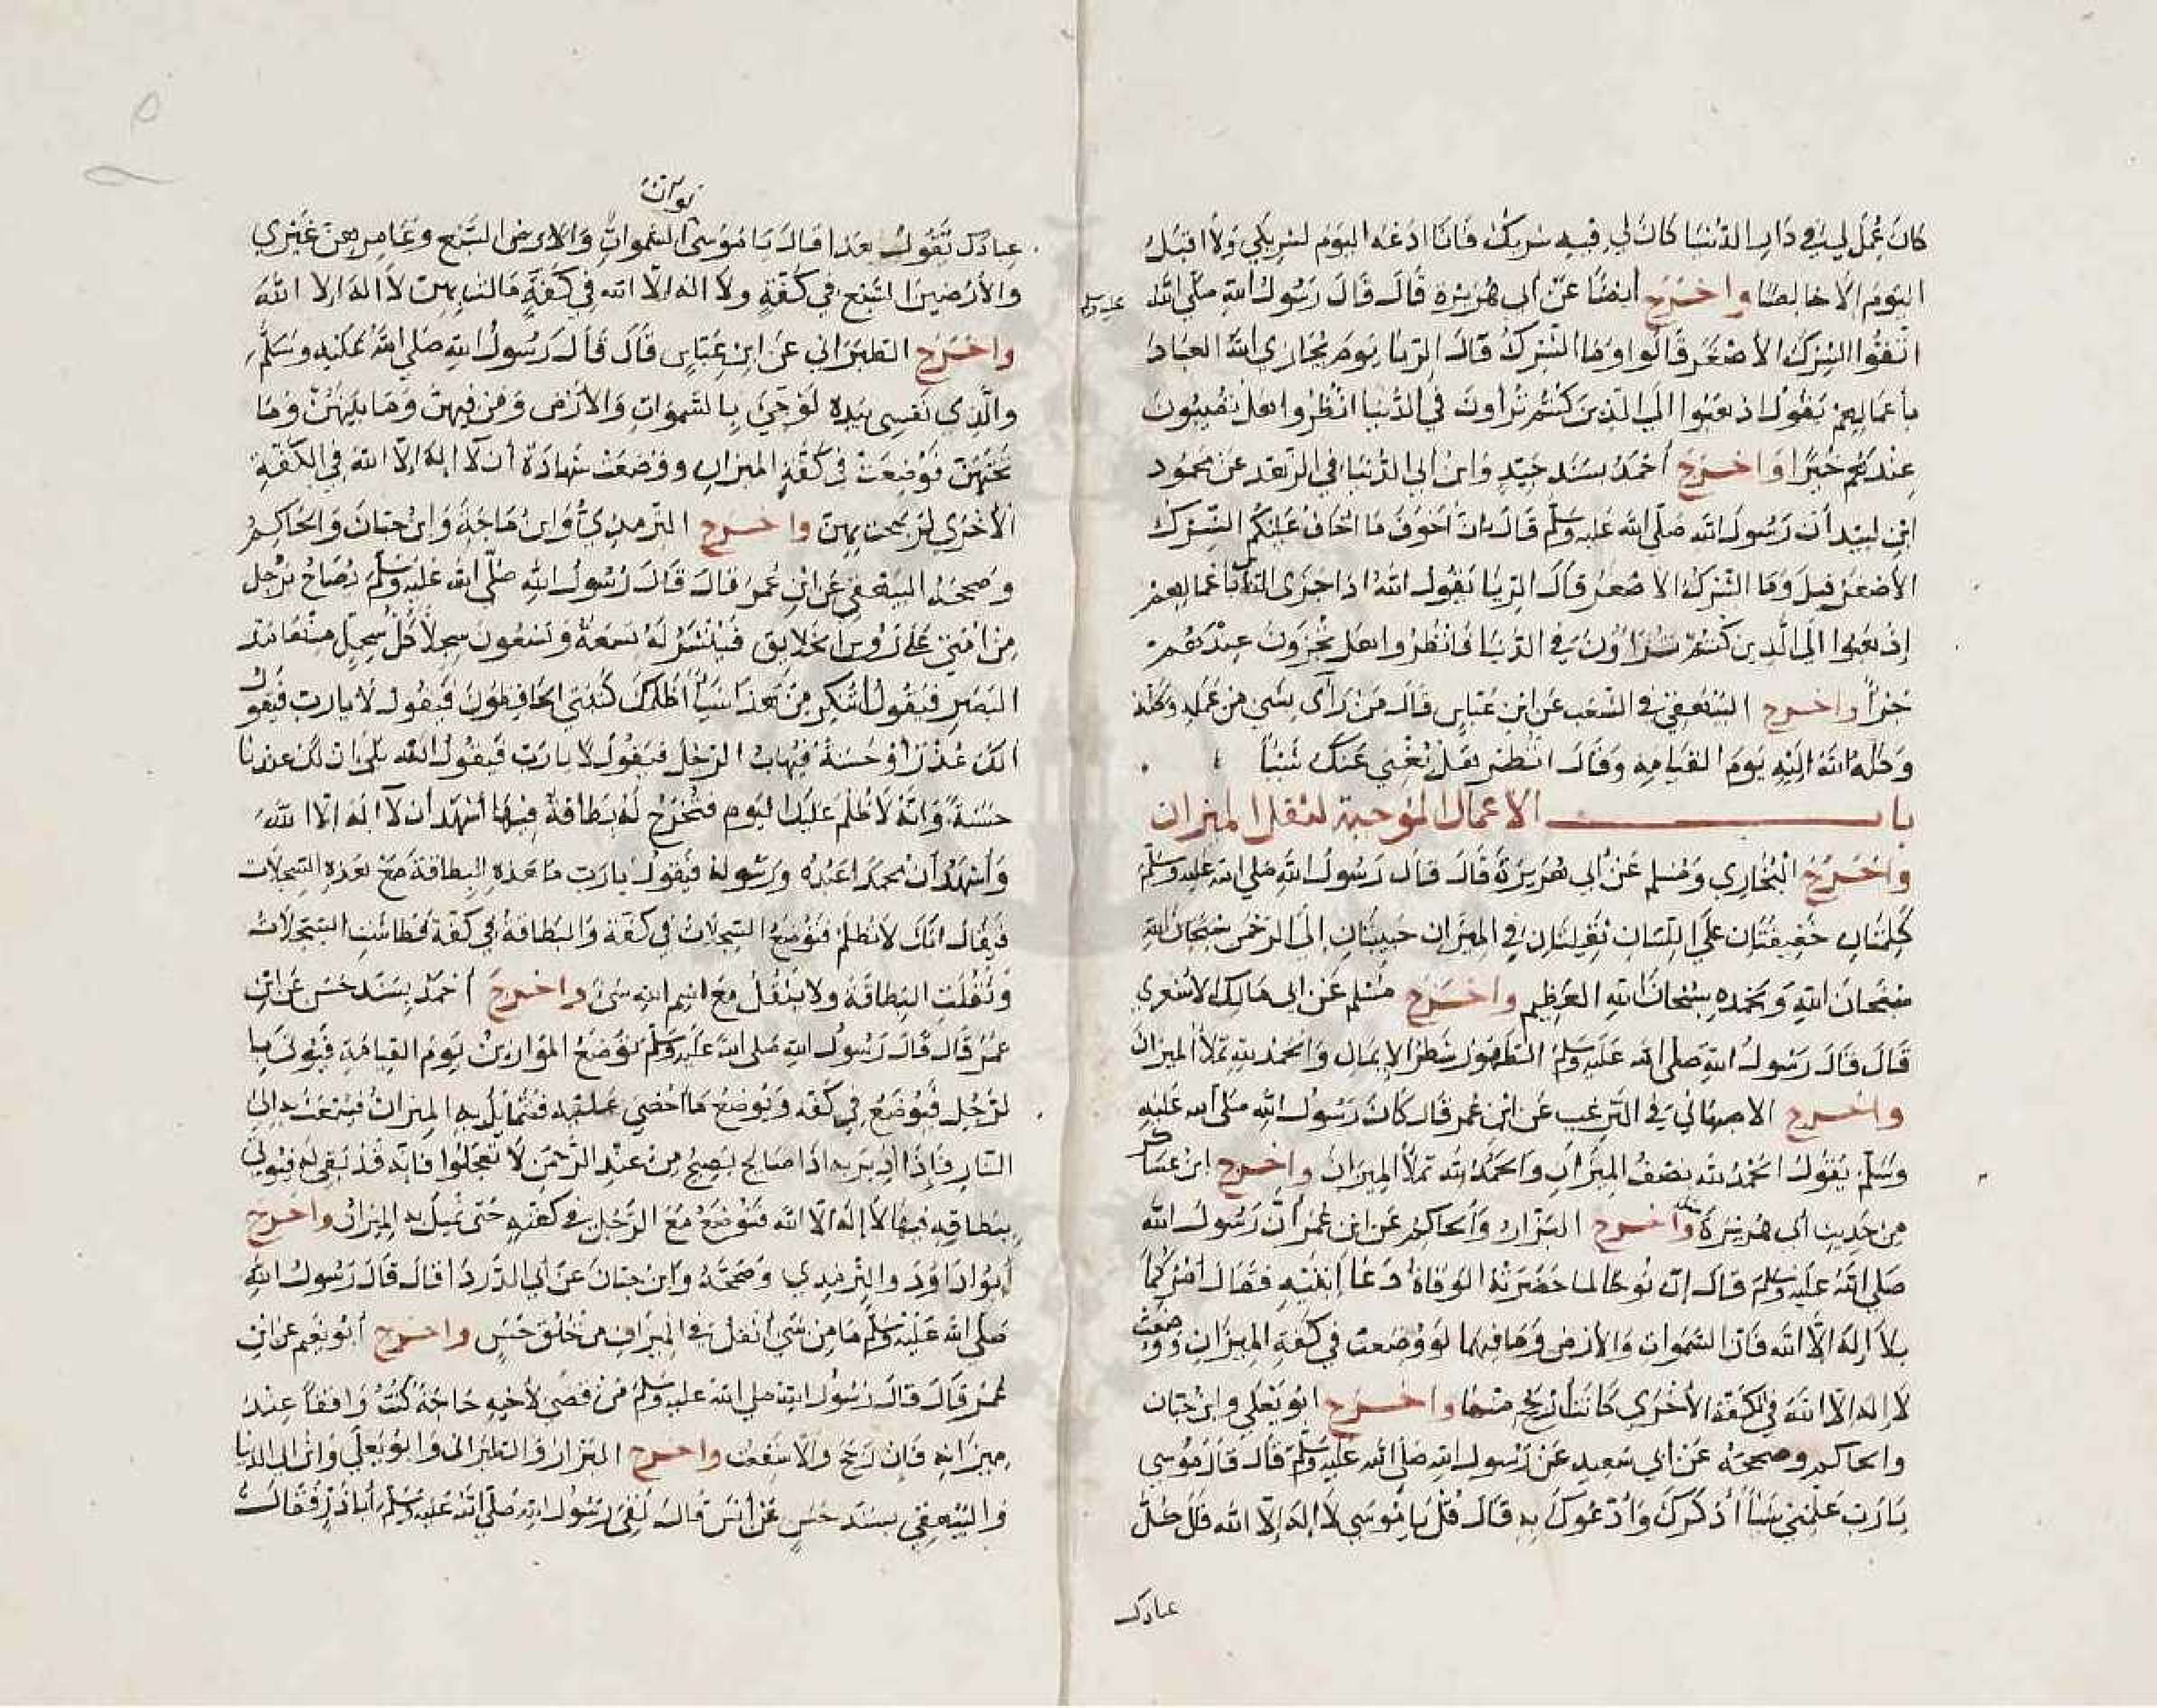 كان عمل لي في دار الدنيا كان لي فيه شريك فانا ادعه اليوم لشريكي ولا اقبل
اليوم الا خالصا واخرج أيضا عن أبي هريرة قال قال رسول الله صلى الله عليه وسلم
اتقوا الشرك الأصغر قالوا وما الشرك قال الريا يوم يجازى الله العباد
بأعمالهم يقول اذهبوا الى الذين كنتم تراون في الدنيا انظروا هل تصيبون
عندهم خيرا واخرج أحمد بسند جيد وابن ابي الدنيا في الزهد عن محمود
ابن لبيد أن رسول الله صلى الله عليه وسلم قال ان اخوف ما اخاف عليكم الشرك
الأصغر قيل وما الشرك الاصغر قال الريا يقول الله اذا جزى الناس باعمالهم
إذهبوا الى الذين كنتم تراؤن في الدنيا فانظروا هل تجزون عندهم
جزاً واخرج البيهقي في الشعب عن ابن عباس قال من راأى بشي من عمله وكله
وكله الله اليه يوم القيامة وقال انظر هل يغني عنك شيئاً
باب الاعمال الموجبة لثقل الميزان
واخرج البخاري ومسلم عن أبي هريرة قال قال رسول الله صلى الله عليه وسلم
كلمتان خفيفتان على اللسان ثقيلتان في الميزان حبيبتان إلى الرحمن سبحان الله
سبحان الله وبحمده سبحان الله العظيم واخرج مسلم عن ابي مالك الاشعري
قال قال رسول الله صلى الله عليه وسلم الطهور شطر الإيمان والحمد لله تملأ الميزان
واخرج الاصبهاني في الترغيب عن ابن عمر قال كان رسول الله صلى الله عليه
وسلم يقول الحمد لله نصف الميزان والحمد لله تملأ الميزان واخرج ابن عساكر
من حديث أبي هريرة مثله واخرج البزار والحاكم عن ابن عمر أن رسول الله
صلى الله عليه وسلم قال إن نوحا لما حضرته الوفاة دعا إبنيه فقال امركما
بلا إله الا الله فان السموات والأرض وما فيهما لو وضعت في كفة الميزان ووضعت
لا إله الا الله في الكفة الأخرى كانت أرجح منهما واخرج ابو يعلى وابن حبان
والحاكم وصححه عن أبي سعيد عن رسول الله صلى الله عليه وسلم قال قال موسى
يا رب علمني شيأ أذكرك وأدعوك به قال قل يا موسى لا إله إلا الله قال كل
عبادك
عبادك تقول هذا قال يا موسى السموات والارض السبع وعامرهن غيري
والأرضين السبع في كفة ولا اله الا الله في كفة مالت بهن لا اله الا الله
واخرج الطبراني عن ابن عباس قال قال رسول الله صلى الله عليه وسلم
والذي نفسي بيده لو جئ بالسموات والأرض ومن فيهن وما بينهن وما
تحتهن فوضعت في كفة الميزان ووضعت شهادة أن لا إله إلا الله في الكفة
الأخرى لرجحت بهن واخرج الترمذي وابن ماجة وابن حبان والحاكم
وصححه البيهقي عن ابن عمر قال قال رسول الله صلى الله عليه وسلم يصاح برجل
من امتي على رؤس الخلايق فينشر له تسعة وتسعون سجلا كل سجل منها مد
البصر فيقول أتنكر من هذا شيأ أظلمك كتبتي الحافظون فيقول لا يا رب فيقول
الك عذر أو حسنة فيهاب الرجل فيقول لا يا رب فيقول الله بلى ان لك عندنا
حسنة وانه لا ظلم عليك اليوم فتخرج له بطاقة فيها أشهد أن لا اله الا الله
وأشهد أن محمدا عبده ورسوله فيقول يا رب ما هذه البطاقة مع هذه السجلات
فيقال انك لا تظلم فتوضع السجلات في كفة والبطاقة في كفة فطاشت السجلات
وثقلت البطاقة ولا يثقل مع اسم الله شئ واخرج أحمد بسند حسن عن ابن
عمر قال قال رسول الله صلى الله عليه وسلم توضع الموازين يوم القيامة فيؤتى با
لرجل فيوضع في كفة ويوضع ما أحصى عليه فتمايل به الميزان فيبعث به إلى
النار فإذا أدبر به اذا صائح يصيح من عند الرحمن لا تعجلوا فانه قد بقى له فيوتى
ببطاقة فيها لا إله الا الله فتوضع مع الرجل في كفة حتى تميل به الميزان واخرج
أبو داود والترمذي وصححه وابن حبان عن أبي الدردا قال قال رسول الله
صلى الله عليه وسلم ما من شي أثقل في الميزان من خلق حسن واخرج أبو نعيم عن ابن
عمر قال قال رسول الله صلى الله عليه وسلم من قضى لأخيه حاجة كنت واقفا عند
ميزانه فإن رجح والا شفعت واخرج البزار والطبراني وابو يعلى وابن ابي الدنيا
والبيهقي بسند حسن عن أنس قال لقى رسول الله صلى الله عليه وسلم أبا ذر فقال